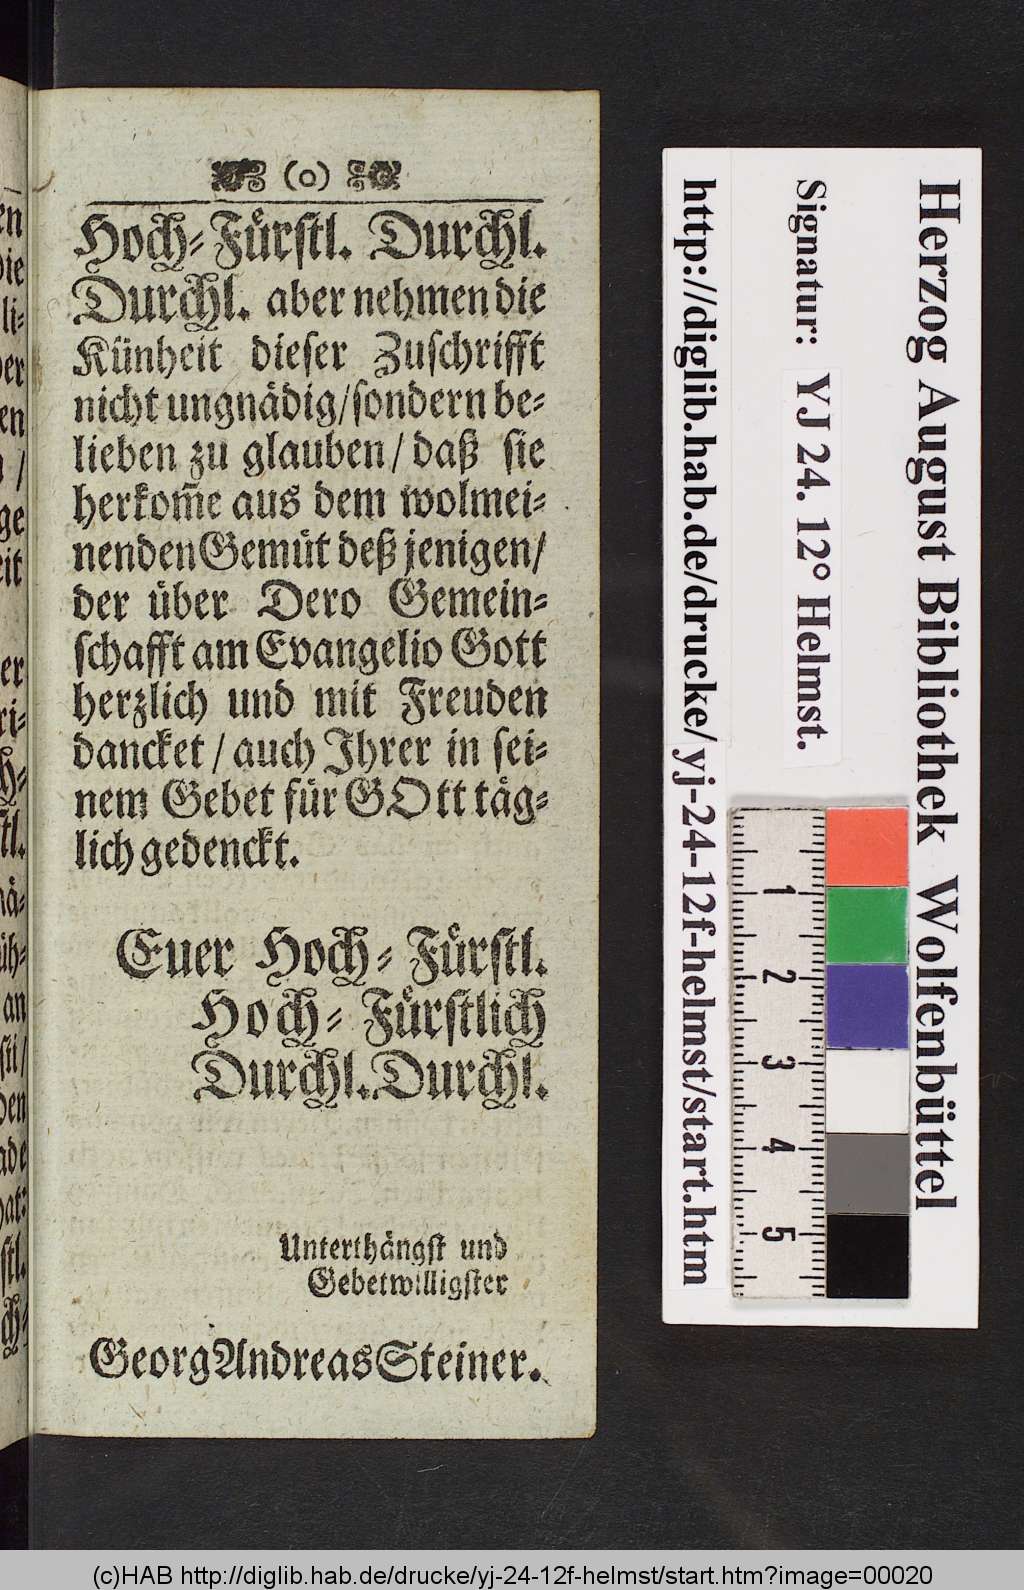 (o)
Hoch-Fürstl. Durchl.
Durchl. aber nehmen die
Künheit dieser Zuschrifft
nicht ungnädig/sondern be-
lieben zu glauben/ daß sie
herkom̃e aus dem wolmei-
nenden Gemüt deß jenigen/
der über Dero Gemein-
schafft am Evangelio Gott
herzlich und mit Freuden
dancket / auch Ihrer in sei-
nem Gebet für GOtt täg-
lich gedenckt.
Euer Hoch-Fürstl.
Hoch-Fürstlich
Durchl. Durchl.
Unterthängst und
Gebetwilligster
Georg Andreas Steiner.
Herzog August Bibliothek Wolfenbüttel
Signatur: YJ 24. 12° Helmst.
http://diglib.hab.de/drucke/yj-24-12f-helmst/start.htm
1
2
3
4
5
(c)HAB http://diglib.hab.de/drucke/yj-24-12f-helmst/start.htm?image=00020